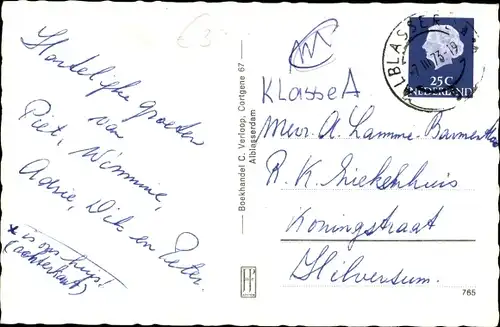 Hartelijke groeten
van
Piet, Wimmie,
Adrie, Dik en Peter.
* is ons huis!
(achterkant)
Boekhandel C. Verloop, Cortgene 67
Alblasserdam
ALBLASSER
7 III 73-19
25C
NEDERLAND
Klasse A
Mevr. A. Lamme-
R. K. Ziekenhuis
Koningstraat
Hilversum.
765